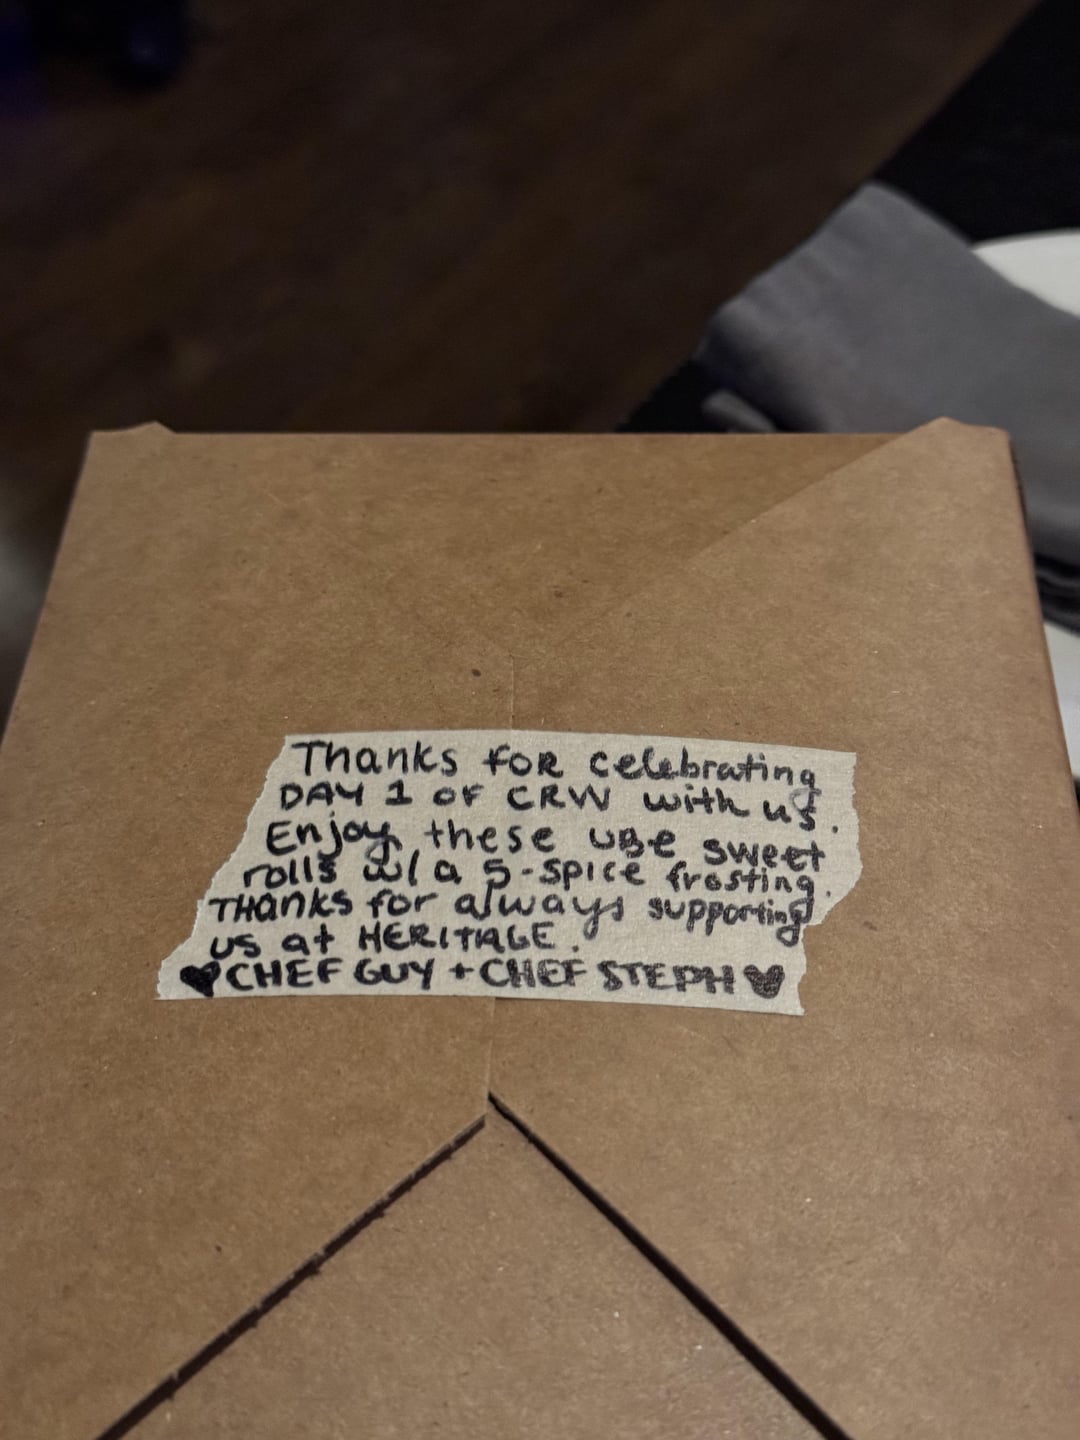 Thanks for celebrating
DAY 1 OF CRW with us.
Enjoy these UBE sweet
rolls w/ a 5-spice frosting.
THANKS for always supporting
us at HERITAGE.
♥CHEF GUY + CHEF STEPH♥